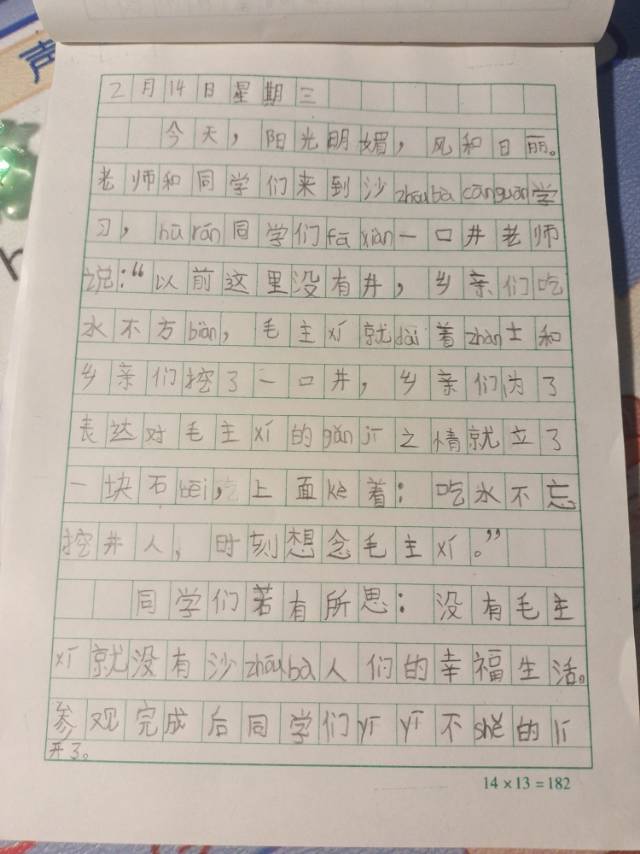 声
2月14日星期三
今天，阳光明媚，风和日丽。
老师和同学们来到沙zhōubà cānguān学
习，hū rán同学们fā xiàn一口井老师
说：“以前这里没有井，乡亲们吃
水不方biàn，毛主xí就dài着zhàn士和
乡亲们挖了一口井，乡亲们为了
表达对毛主xí的gǎn jī之情就立了
一块石bēi，上面kè着：吃水不忘
挖井人，时刻想念毛主xí。”
同学们若有所思：没有毛主
xí就没有沙zhōubà人们的幸福生活。
参观完成后同学们yī yī不shě的lí
开了。
14×13=182